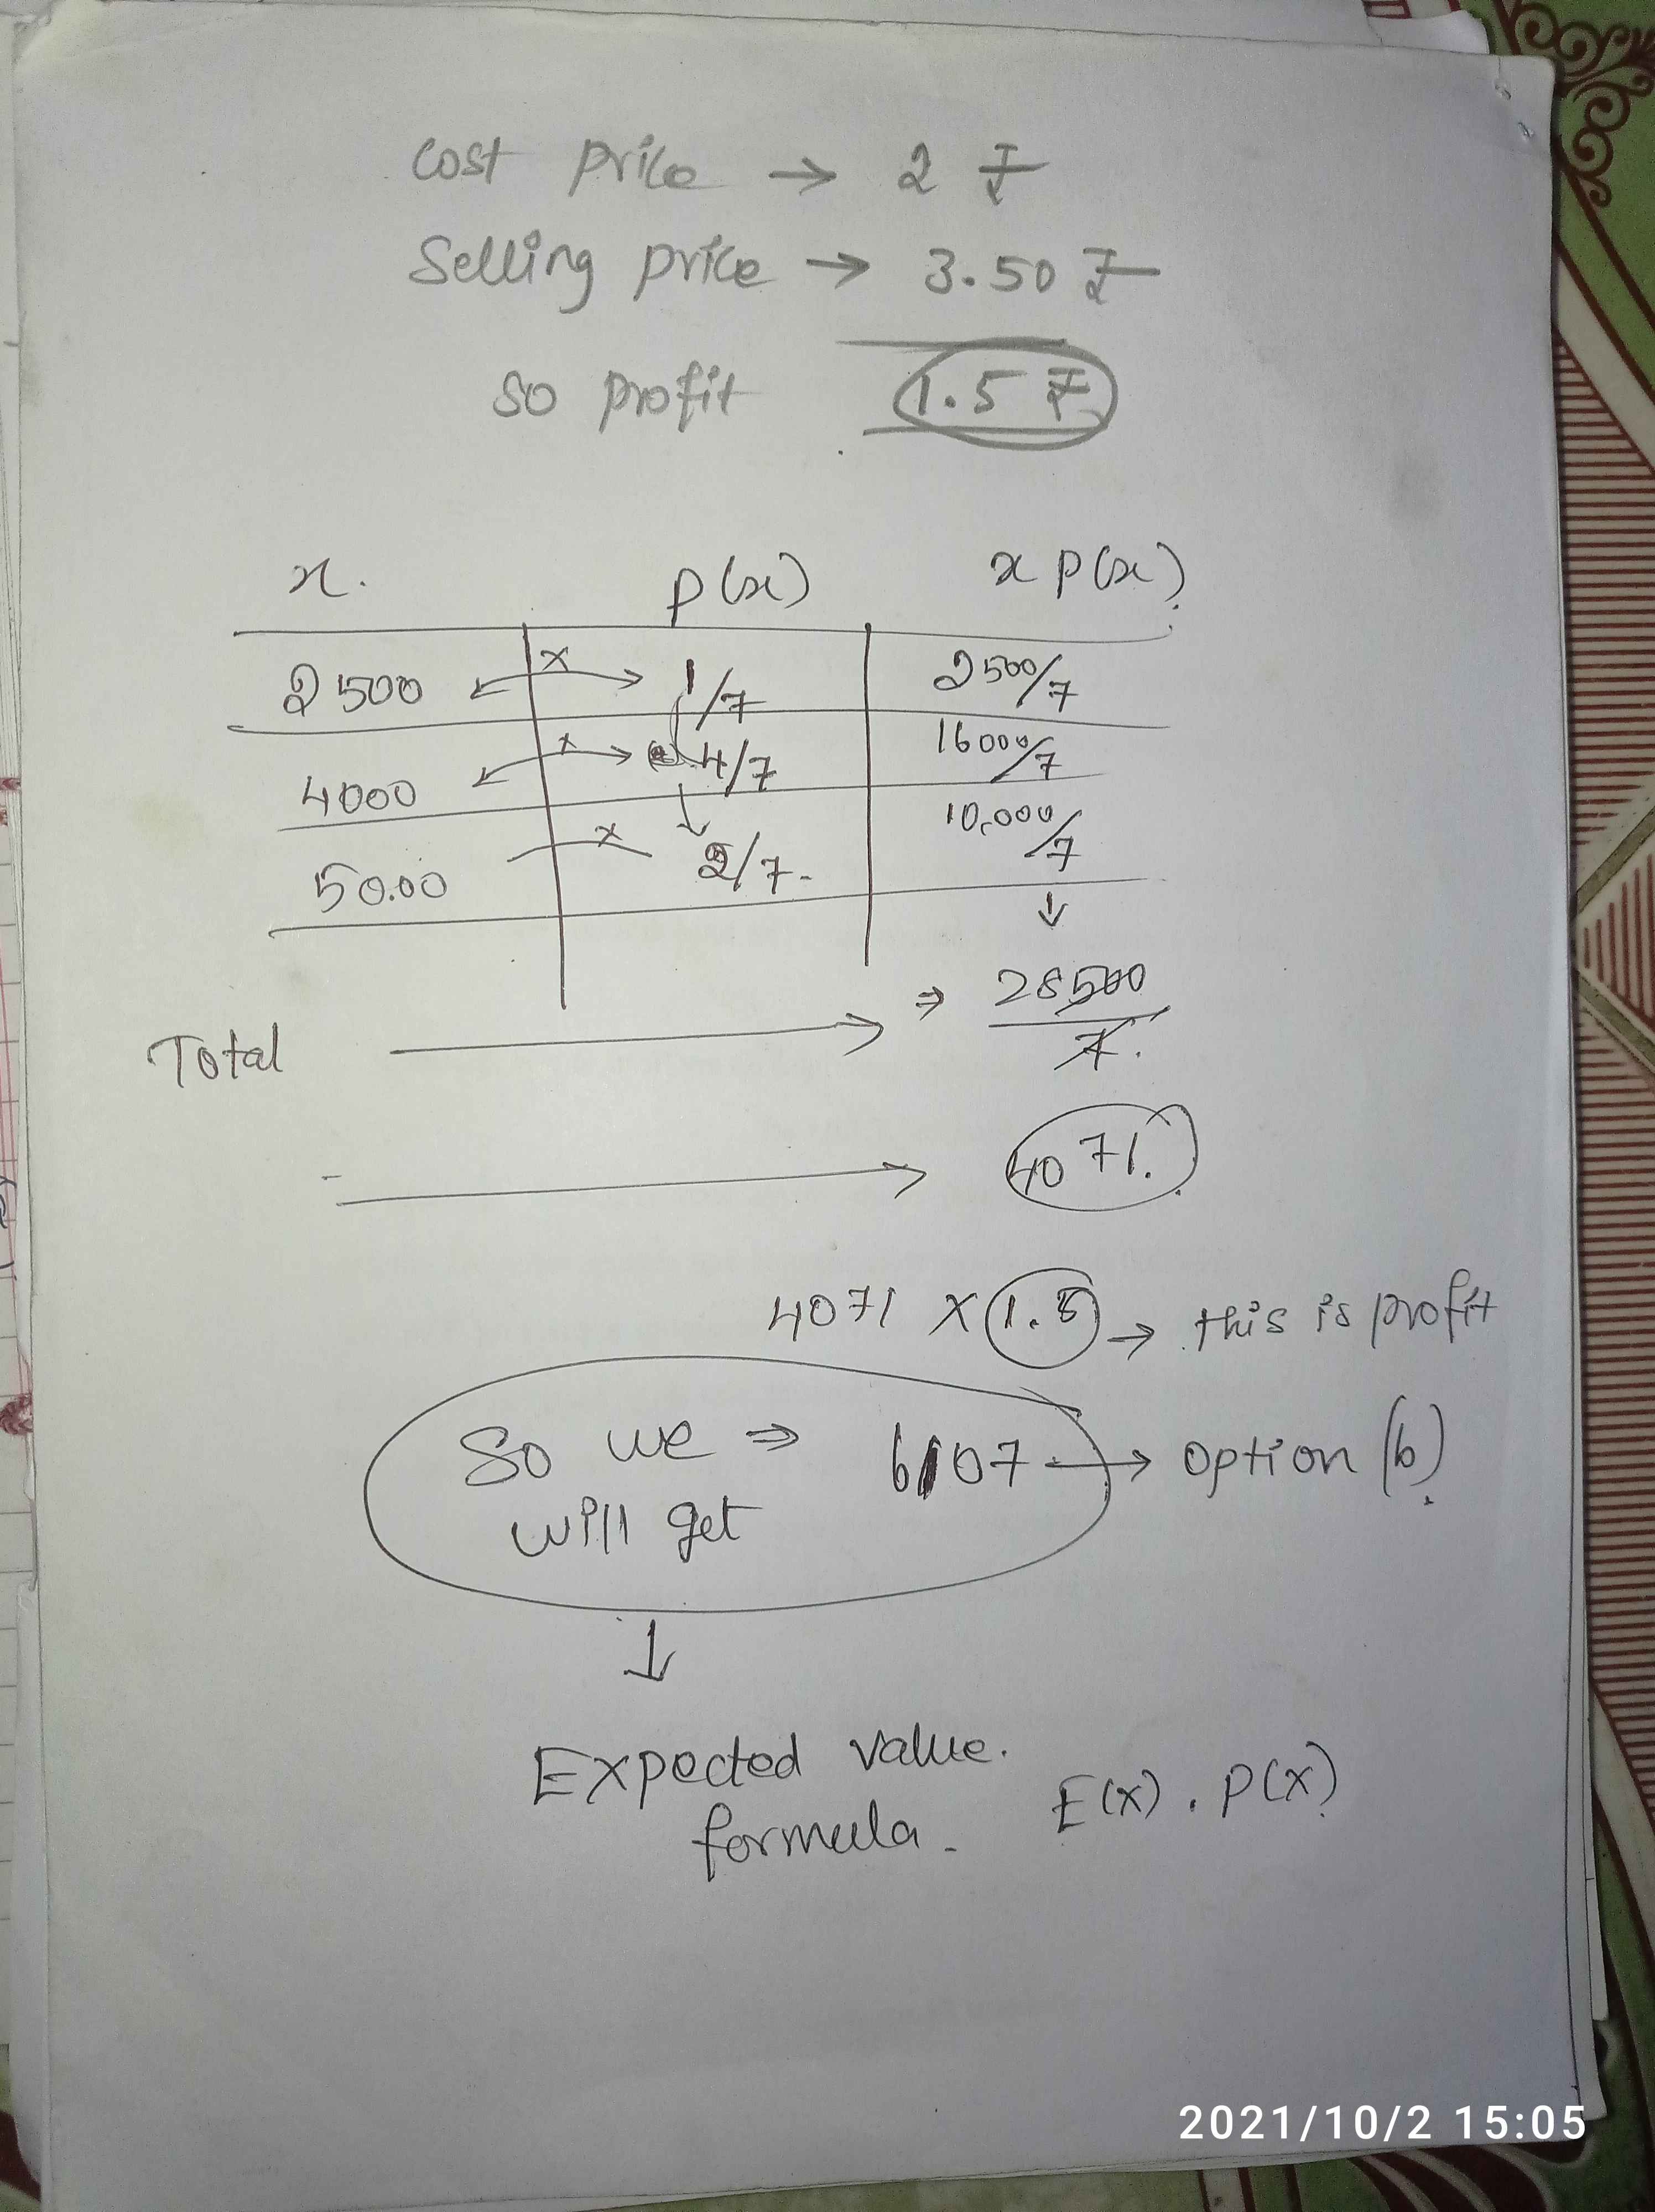 Cost price → 2 ₹
Selling price → 3.50 ₹
so profit 1.5 ₹
x. P(x) x P(x)
2500 x 1/7 2500/7
4000 x 4/7 16000/7
50.00 x 2/7. 10,000/7
Total → ⇒ 28500/7.
→ 4071.
4071 x 1.5 → this is profit
So we ⇒ 6107 → option (b)
will get
↓
Expected value.
formula. E(x) . P(x)
2021/10/2 15:05